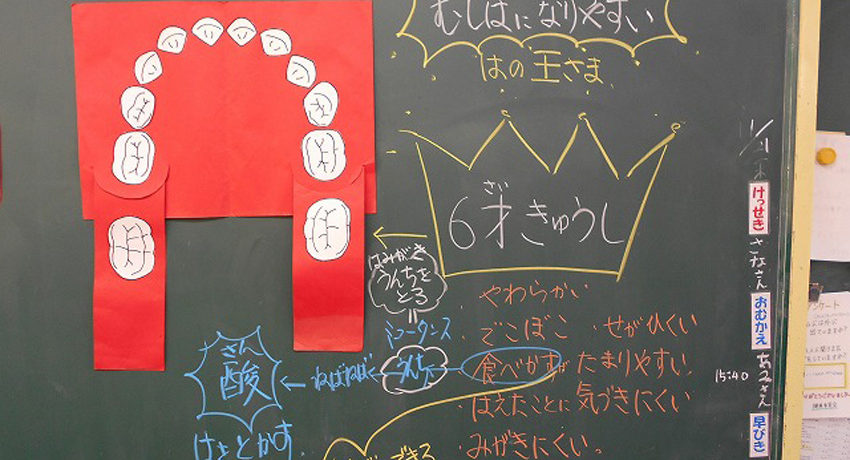 むしばになりやすい
はの王さま
ざ
6才きゅうし
はみがき
うんちを
とる
ミュータンス
うんち
ねばねば
さん
酸
・やわらかい
・でこぼこ ・せがひくい
・食べかすがたまりやすい
・はえたことに気づきにくい
・みがきにくい。
けっせき
さなさん
おむかえ
あみさん
15:40
早びき
アンケート